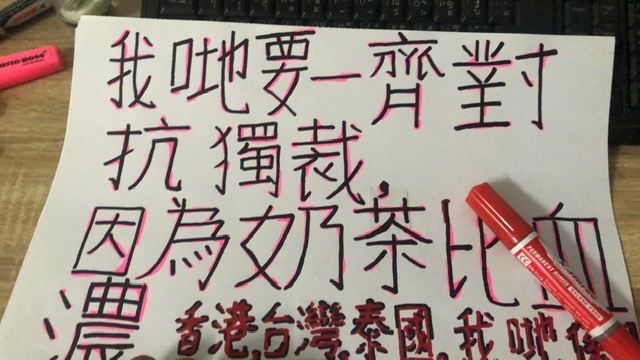 我哋要一齊對
抗獨裁,
因為奶茶比血
濃 香港,台灣,泰國,我哋
PERMANENT MARKER